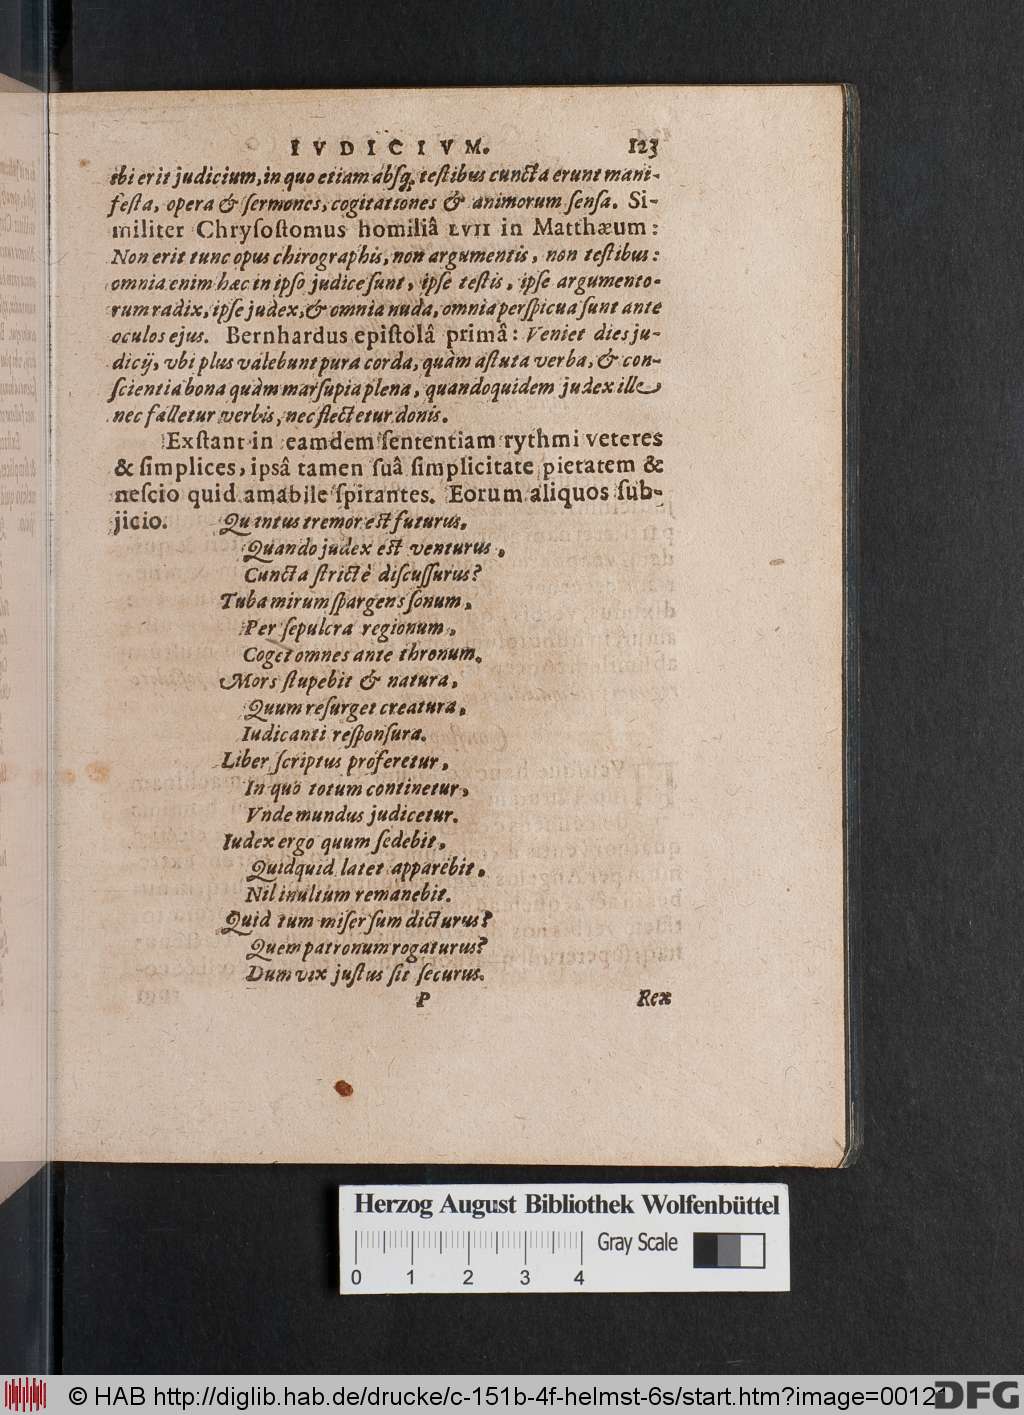 IVDICIVM. 123
ibi erit judicium, in quo etiam absq; testibus cuncta erunt mani-
festa, opera & sermones, cogitationes & animorum sensa. Si-
militer Chrysostomus homiliâ LVII in Matthæum:
Non erit tunc opus chirographis, non argumentis, non testibus:
omnia enim hæc in ipso judice sunt, ipse testis, ipse argumento-
rum radix, ipse judex, & omnia nuda, omnia perspicua sunt ante
oculos ejus. Bernhardus epistolâ primâ: Veniet dies ju-
dicij, vbi plus valebunt pura corda, quàm astuta verba, & con-
scientia bona quàm marsupia plena, quandoquidem judex ille
nec falletur verbis, nec flectetur donis.
Exstant in eamdem sententiam rythmi veteres
& simplices, ipsâ tamen suâ simplicitate pietatem &
nescio quid amabile spirantes. Eorum aliquos sub-
jicio. Quantus tremor est futurus,
Quando judex est venturus,
Cuncta strictè discussurus?
Tuba mirum spargens sonum,
Per sepulcra regionum,
Coget omnes ante thronum.
Mors stupebit & natura,
Quum resurget creatura,
Iudicanti responsura.
Liber scriptus proferetur,
In quo totum continetur,
Vnde mundus judicetur.
Iudex ergo quum sedebit,
Quidquid latet apparebit,
Nil inultum remanebit.
Quid tum miser sum dicturus?
Quem patronum rogaturus?
Dum vix justus sit securus.
P Rex
Herzog August Bibliothek Wolfenbüttel
Gray Scale
0 1 2 3 4
© HAB http://diglib.hab.de/drucke/c-151b-4f-helmst-6s/start.htm?image=00121
DFG